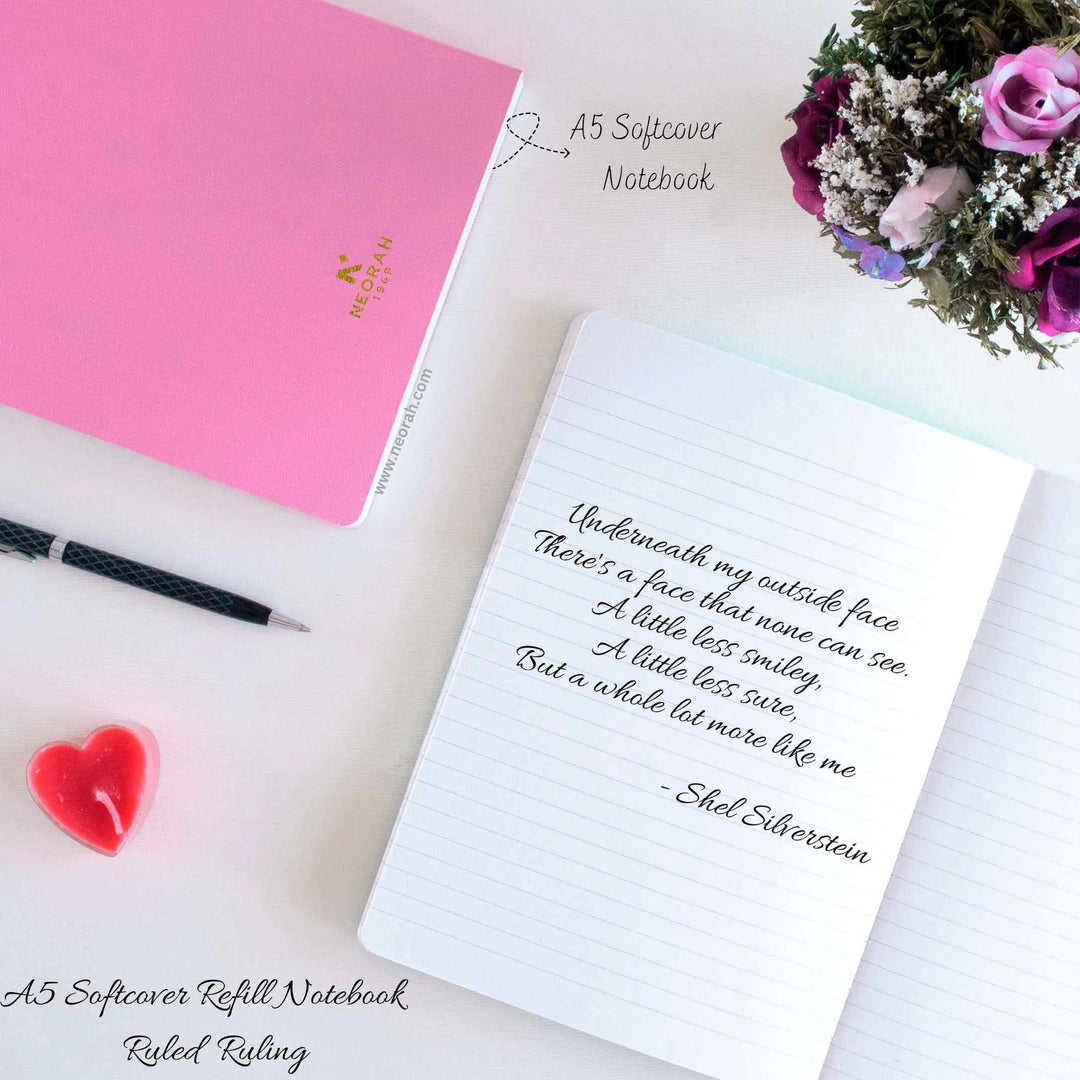 A5 Softcover
Notebook
NEORAH
1969
www.neorah.com
Underneath my outside face
There's a face that none can see.
A little less smiley,
A little less sure,
But a whole lot more like me
- Shel Silverstein
A5 Softcover Refill Notebook
Ruled Ruling